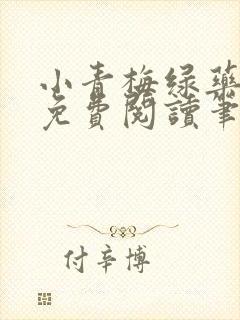 小青梅绿药
免費閱讀筆
付辛博